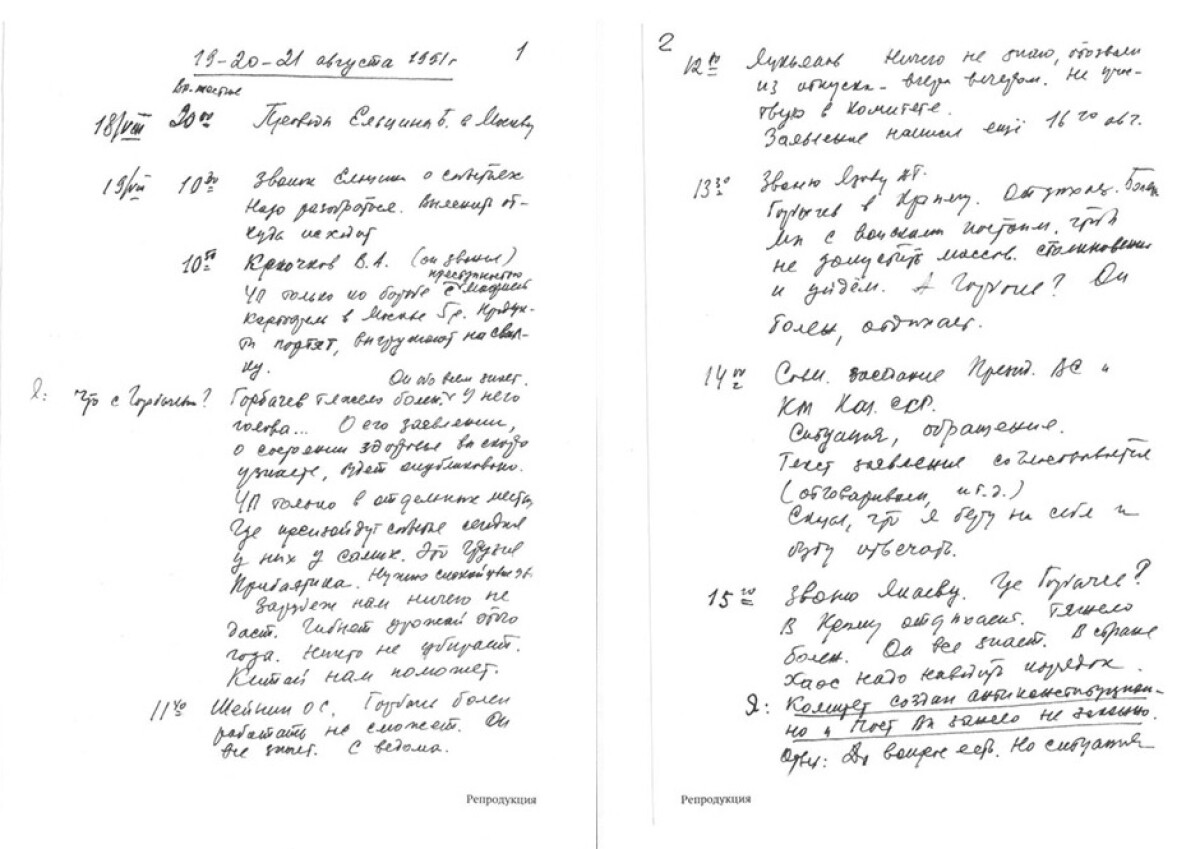 1
19-20-21 августа 1991 г
18/VIII 20 00 Проводы Ельцина Б. в Москву
19/VIII 10 30 Звонит Ельцин о событиях
Надо разобраться. Выяснить от-
куда исходит
10 50 Крючков В.А. (он звонил)
преступностью
ЧП только по борьбе с мафией
Картофель в Москве 5 р. Продук-
ты портят, выгружают на свал-
ку.
Он обо всем знает.
Я: Что с Горбачевым? Горбачев тяжело болен. У него
голова... О его заявлении,
о состоянии здоровья вы скоро
узнаете, будет опубликовано.
ЧП только в отдельных местах,
Где произойдут события сегодня
у них у самих. Это Грузия
Прибалтика. Нужно спокойствие
Зарубеж нам ничего не
даст. Гибнет урожай этого
года. Никто не убирает.
Китай нам поможет.
11 40 Шейнин О С. Горбачев болен
работать не сможет. Он
все знает. С ведома.
Репродукция
2
12 00 Лукьянов Ничего не знаю, отозвали
из отпуска - вчера вечером. Не учас-
твую в Комитете.
Заявление написал ещё 16 го авг.
13 30 Звоню Язову Д.Т.
Горбачев в Крыму. Отдыхает.
Мы с войсками постоим, чтоб
не допустить массов. столкновения
и уйдём. А Горбачев? Он
болен, отдыхает.
14 00 Совм. заседание Презид. ВС и
Каз. ССР.
Ситуация, обращение.
Текст заявления согласовывается
(отговаривали, и т.д.)
Сказал, что я беру на себя и
буду отвечать.
15 Звоню Янаеву. Где Горбачев?
В Крыму отдыхает. Тяжело
болен. Он все знает. В стране
Хаос надо наводить порядок.
Я: Комитет создан антиконституцион-
но и Пост Вы заняли не законно.
Ответ: Да вопрос есть. Но ситуация
Репродукция